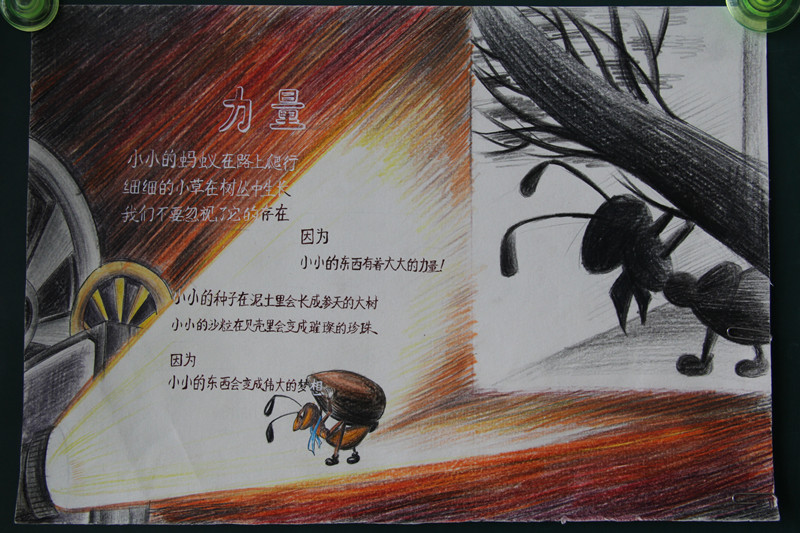 力量
小小的蚂蚁在路上爬行
细细的小草在树丛中生长
我们不要忽视了它的存在
因为
小小的东西有着大大的力量!
小小的种子在泥土里会长成参天的大树
小小的沙粒在贝壳里会变成璀璨的珍珠、
因为
小小的东西会变成伟大的梦想